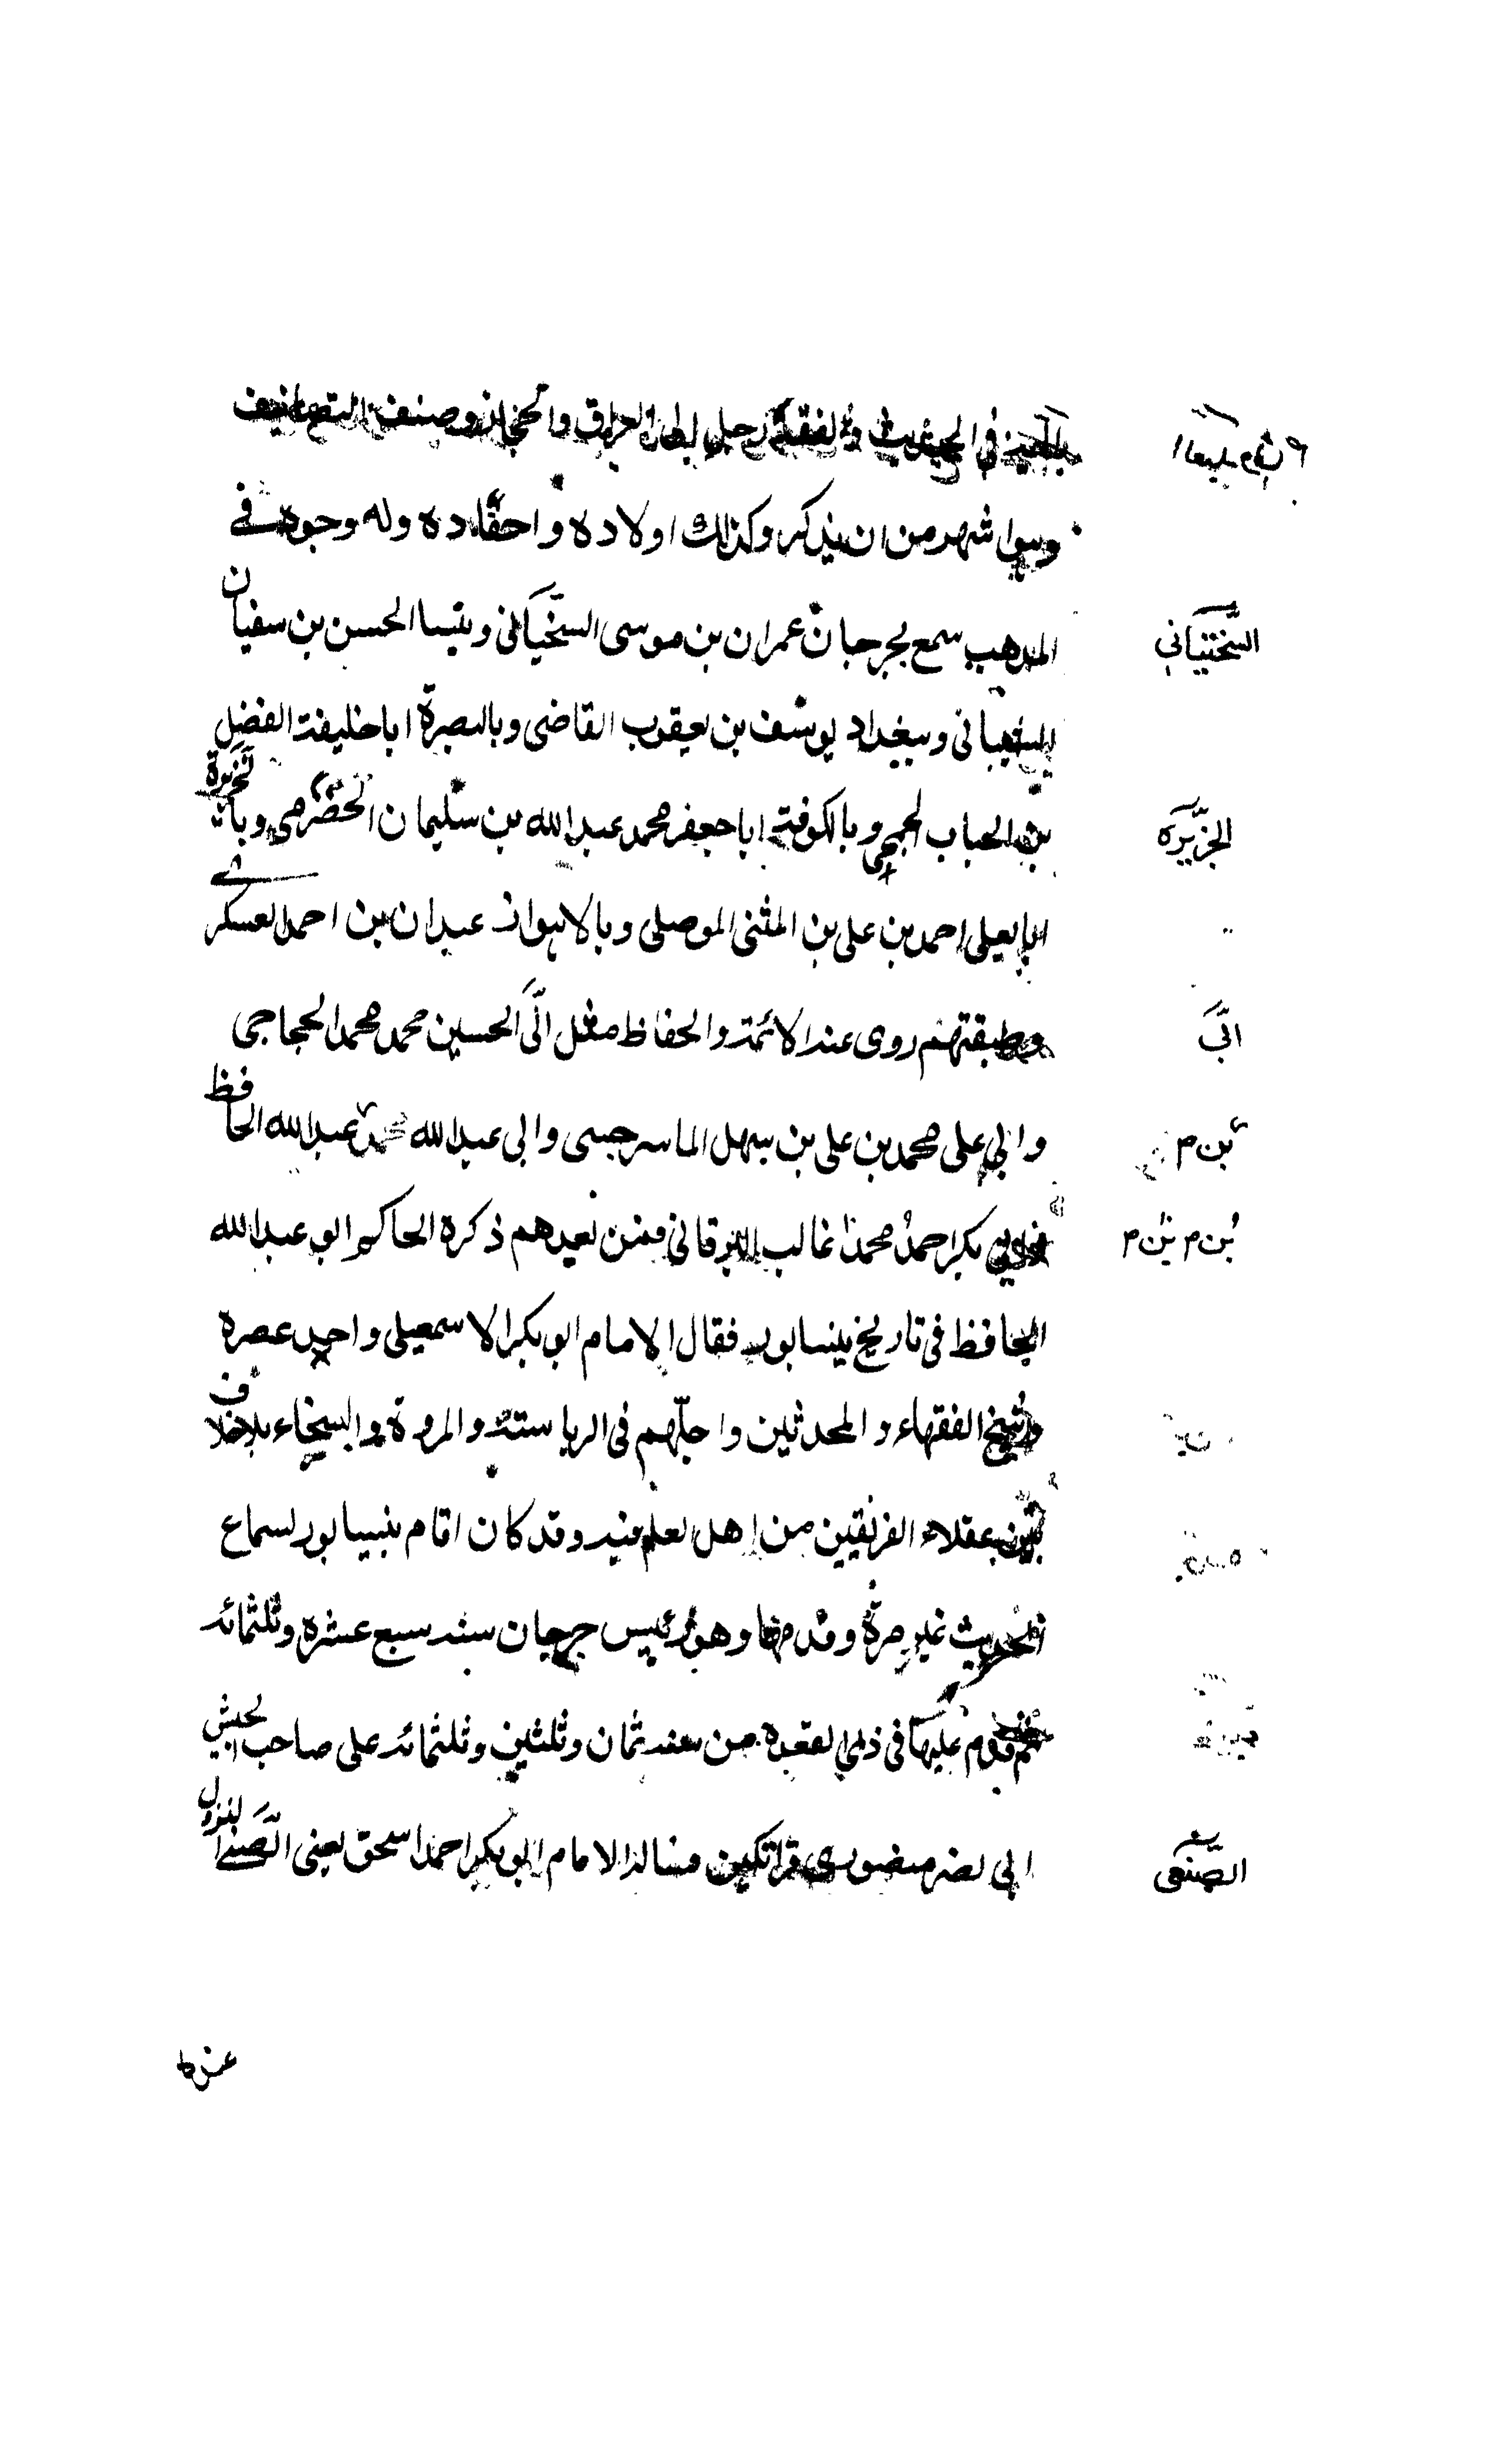 في الحديث والفقه رحل الى العراق والحجاز وصنف التصانيف
وهو اشهر من ان يذكر وكذلك اولاده واحفاده وله وجوه في
المذهب سمع بجرجان عمران بن موسى السختياني وبنسا الحسن بن سفيان
الشيباني وببغداد يوسف بن يعقوب القاضي وبالبصرة ابا خليفة الفضل
بن الحباب الجمحي وبالكوفة ابا جعفر محمد عبد الله بن سليمان الحضرمي وبالجزيرة
ابا يعلى احمد بن علي بن المثنى الموصلي وبالاهواز عبدان بن احمد العسكري
وطبقتهم روى عنه الائمة والحفاظ مثل ابي الحسين محمد محمد الحجاجي
وابي علي محمد بن علي بن سهل الماسرجسي وابي عبد الله محمد عبد الله الحافظ
وابي بكر احمد محمد غالب البرقاني فمن بعدهم ذكره الحاكم ابو عبد الله
الحافظ في تاريخ نيسابور فقال الامام ابو بكر الاسمعيلي واحد عصره
وشيخ الفقهاء والمحدثين واجلهم في الرياسة والمروة والسخاء بلا خلاف
بين عقلاء الفريقين من اهل العلم فيه وقد كان اقام بنيسابور لسماع
الحديث غير مرة وقدمها وهو رئيس جرجان سنه سبع عشره وثلثمائه
ثم قدم عليها في ذي القعده من سنه ثمان وثلثين وثلثمائه على صاحب الجيش
ابي نصر منصور قراتكين فساله الامام ابو بكر احمد اسحق يعني الصبغي النزول
السختياني
الجزيرة
ابي
بن م
بن م بن م
الصبغي
عنده